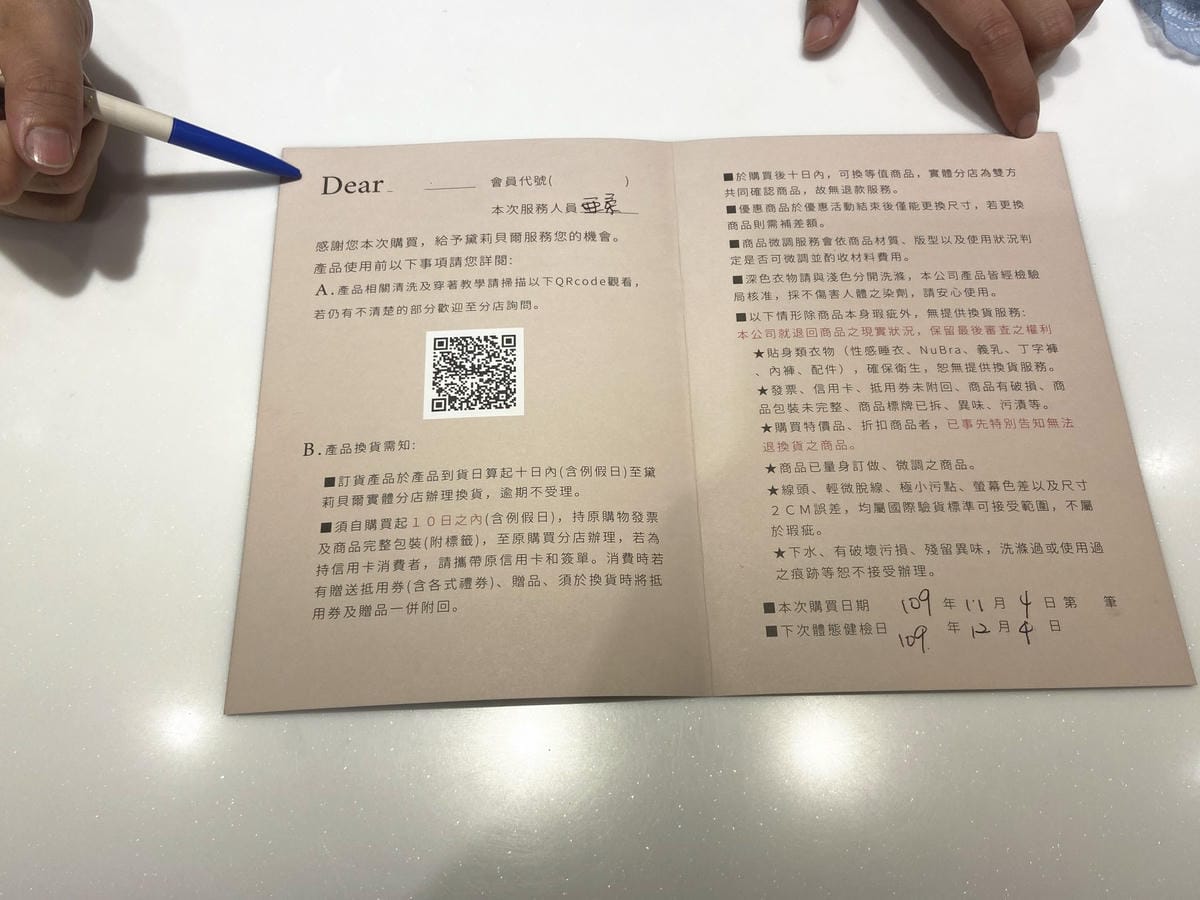 Dear
會員代號( )
本次服務人員 亞柔
感謝您本次購買，給予黛莉貝爾服務您的機會。
產品使用前以下事項請您詳閱:
A.產品相關清洗及穿著教學請掃描以下QRcode觀看，
若仍有不清楚的部分歡迎至分店詢問。
B.產品換貨需知:
■訂貨產品於產品到貨日算起十日內(含例假日)至黛
莉貝爾實體分店辦理換貨，逾期不受理。
■須自購買起10日之內(含例假日)，持原購物發票
及商品完整包裝(附標籤)，至原購買分店辦理，若為
持信用卡消費者，請攜帶原信用卡和簽單。消費時若
有贈送抵用券(含各式禮券)、贈品、須於換貨時將抵
用券及贈品一併附回。
■於購買後十日內，可換等值商品，實體分店為雙方
共同確認商品，故無退款服務。
■優惠商品於優惠活動結束後僅能更換尺寸，若更換
商品則需補差額。
■商品微調服務會依商品材質、版型以及使用狀況判
定是否可微調並酌收材料費用。
■深色衣物請與淺色分開洗滌，本公司產品皆經檢驗
局核准，採不傷害人體之染劑，請安心使用。
■以下情形除商品本身瑕疵外，無提供換貨服務:
本公司就退回商品之現實狀況，保留最後審查之權利
★貼身類衣物（性感睡衣、NuBra、義乳、丁字褲
、內褲、配件），確保衛生，恕無提供換貨服務。
★發票、信用卡、抵用券未附回、商品有破損、商
品包裝未完整、商品標牌已拆、異味、污漬等。
★購買特價品、折扣商品者，已事先特別告知無法
退換貨之商品。
★商品已量身訂做、微調之商品。
★線頭、輕微脫線、極小污點、螢幕色差以及尺寸
2CM誤差，均屬國際驗貨標準可接受範圍，不屬
於瑕疵。
★下水、有破壞污損、殘留異味，洗滌過或使用過
之痕跡等恕不接受辦理。
■本次購買日期 109 年 11 月 4 日 第 筆
■下次體態健檢日 109. 年 12 月 4 日